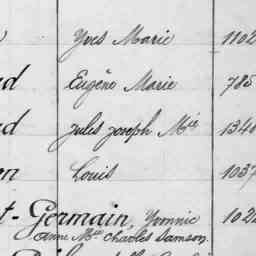 Yves Marie 1102
d Eugène Marie 785
d Jules Joseph Mie 1340
en Louis 1037
t-Germain, Yvonnic 102
Anne Mie Charles Samson.